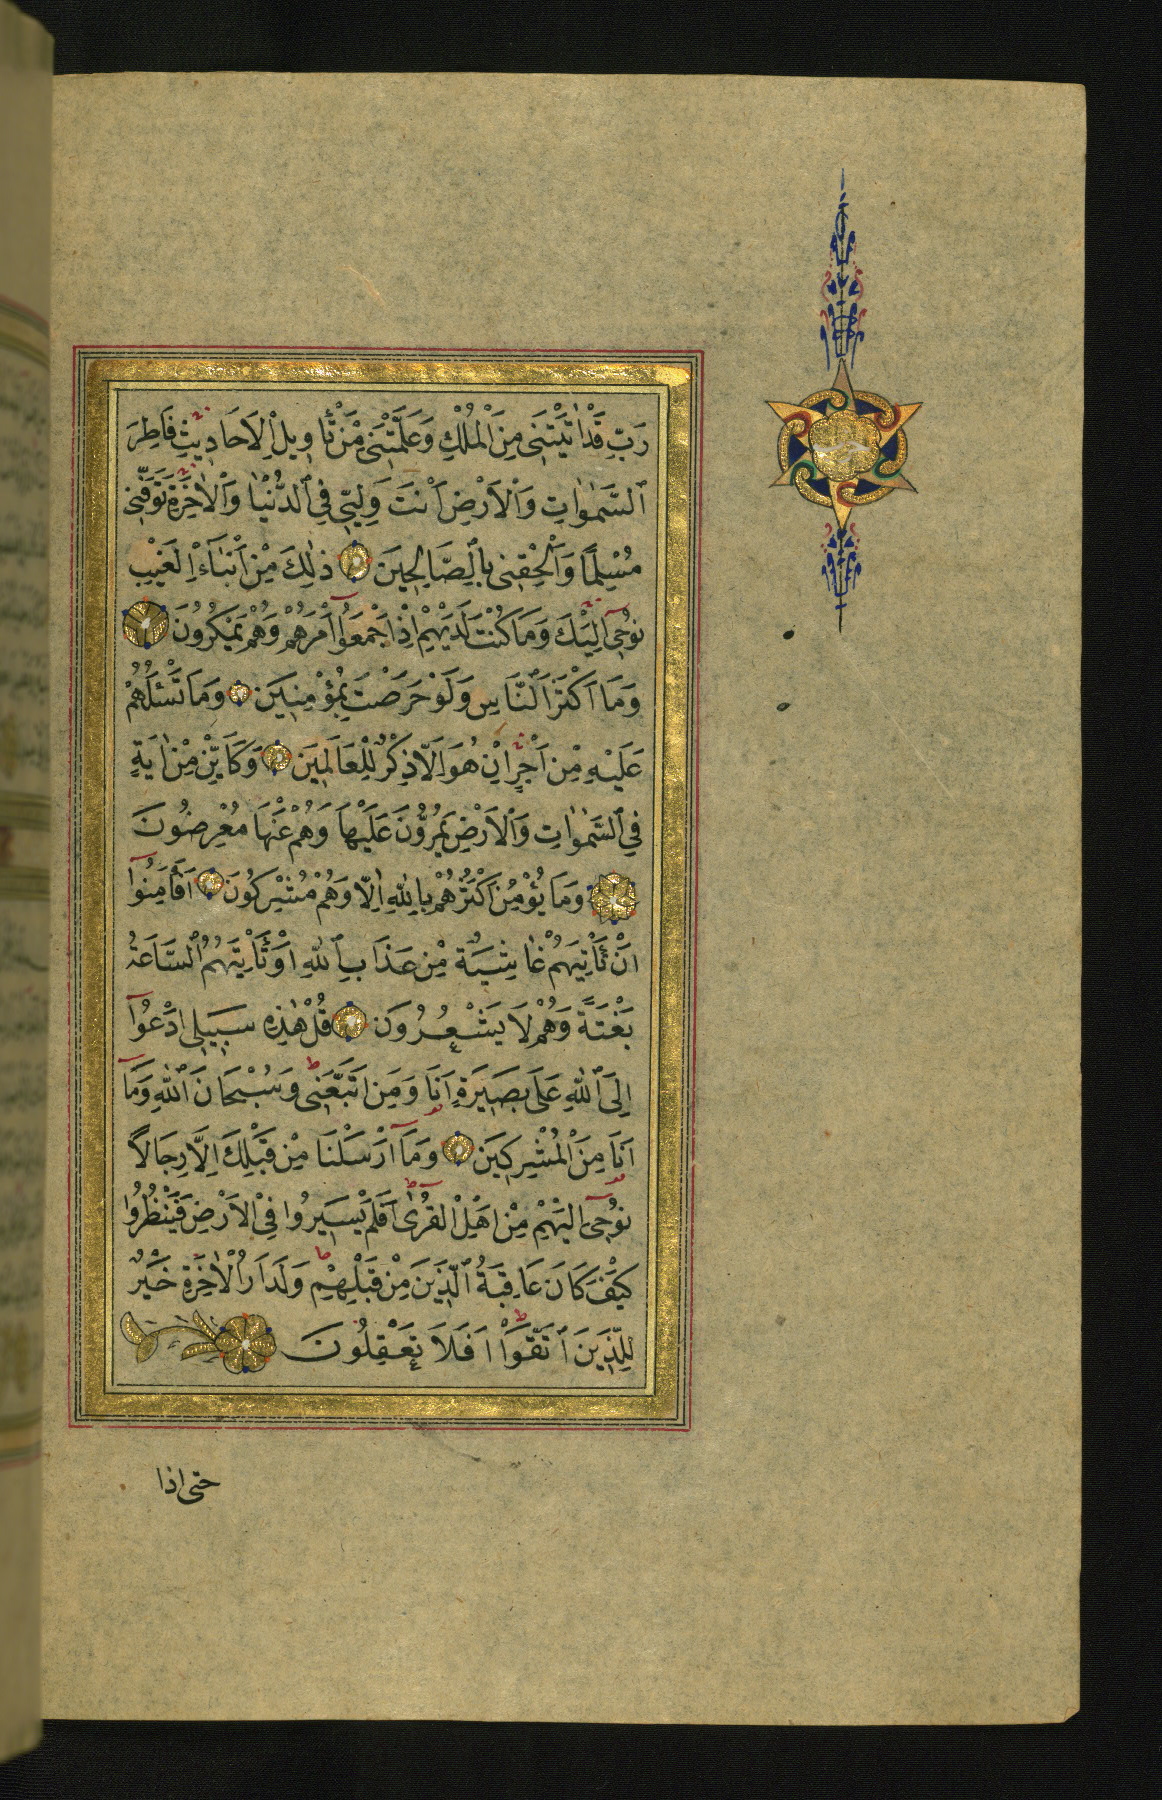 رَبِّ قَدْ اٰتَيْتَنٖى مِنَ الْمُلْكِ وَعَلَّمْتَنٖى مِنْ تَأْوٖيلِ الْاَحَادٖيثِ فَاطِرَ
السَّمٰوَاتِ وَالْاَرْضِ اَنْتَ وَلِيّٖ فِى الدُّنْيَا وَالْاٰخِرَةِ تَوَفَّنٖى
مُسْلِمًا وَاَلْحِقْنٖى بِالصَّالِحٖينَ ذٰلِكَ مِنْ اَنْبَاءِ الْغَيْبِ
نُوحٖيهِ اِلَيْكَ وَمَا كُنْتَ لَدَيْهِمْ اِذْ اَجْمَعُوا اَمْرَهُمْ وَهُمْ يَمْكُرُونَ
وَمَا اَكْثَرُ النَّاسِ وَلَوْ حَرَصْتَ بِمُؤْمِنٖينَ وَمَا تَسْـَٔلُهُمْ
عَلَيْهِ مِنْ اَجْرٍ اِنْ هُوَ اِلَّا ذِكْرٌ لِلْعَالَمٖينَ وَكَاَيِّنْ مِنْ اٰيَةٍ
فِى السَّمٰوَاتِ وَالْاَرْضِ يَمُرُّونَ عَلَيْهَا وَهُمْ عَنْهَا مُعْرِضُونَ
وَمَا يُؤْمِنُ اَكْثَرُهُمْ بِاللّٰهِ اِلَّا وَهُمْ مُشْرِكُونَ اَفَاَمِنُوا
اَنْ تَأْتِيَهُمْ غَاشِيَةٌ مِنْ عَذَابِ اللّٰهِ اَوْ تَأْتِيَهُمُ السَّاعَةُ
بَغْتَةً وَهُمْ لَا يَشْعُرُونَ قُلْ هٰذِهٖ سَبٖيلٖى اَدْعُوا
اِلَى اللّٰهِ عَلٰى بَصٖيرَةٍ اَنَا وَمَنِ اتَّبَعَنٖى وَسُبْحَانَ اللّٰهِ وَمَا
اَنَا مِنَ الْمُشْرِكٖينَ وَمَا اَرْسَلْنَا مِنْ قَبْلِكَ اِلَّا رِجَالًا
نُوحٖى اِلَيْهِمْ مِنْ اَهْلِ الْقُرٰى اَفَلَمْ يَسٖيرُوا فِى الْاَرْضِ فَيَنْظُرُوا
كَيْفَ كَانَ عَاقِبَةُ الَّذٖينَ مِنْ قَبْلِهِمْ وَلَدَارُ الْاٰخِرَةِ خَيْرٌ
لِلَّذٖينَ اتَّقَوْا اَفَلَا تَعْقِلُونَ
حتى اذا